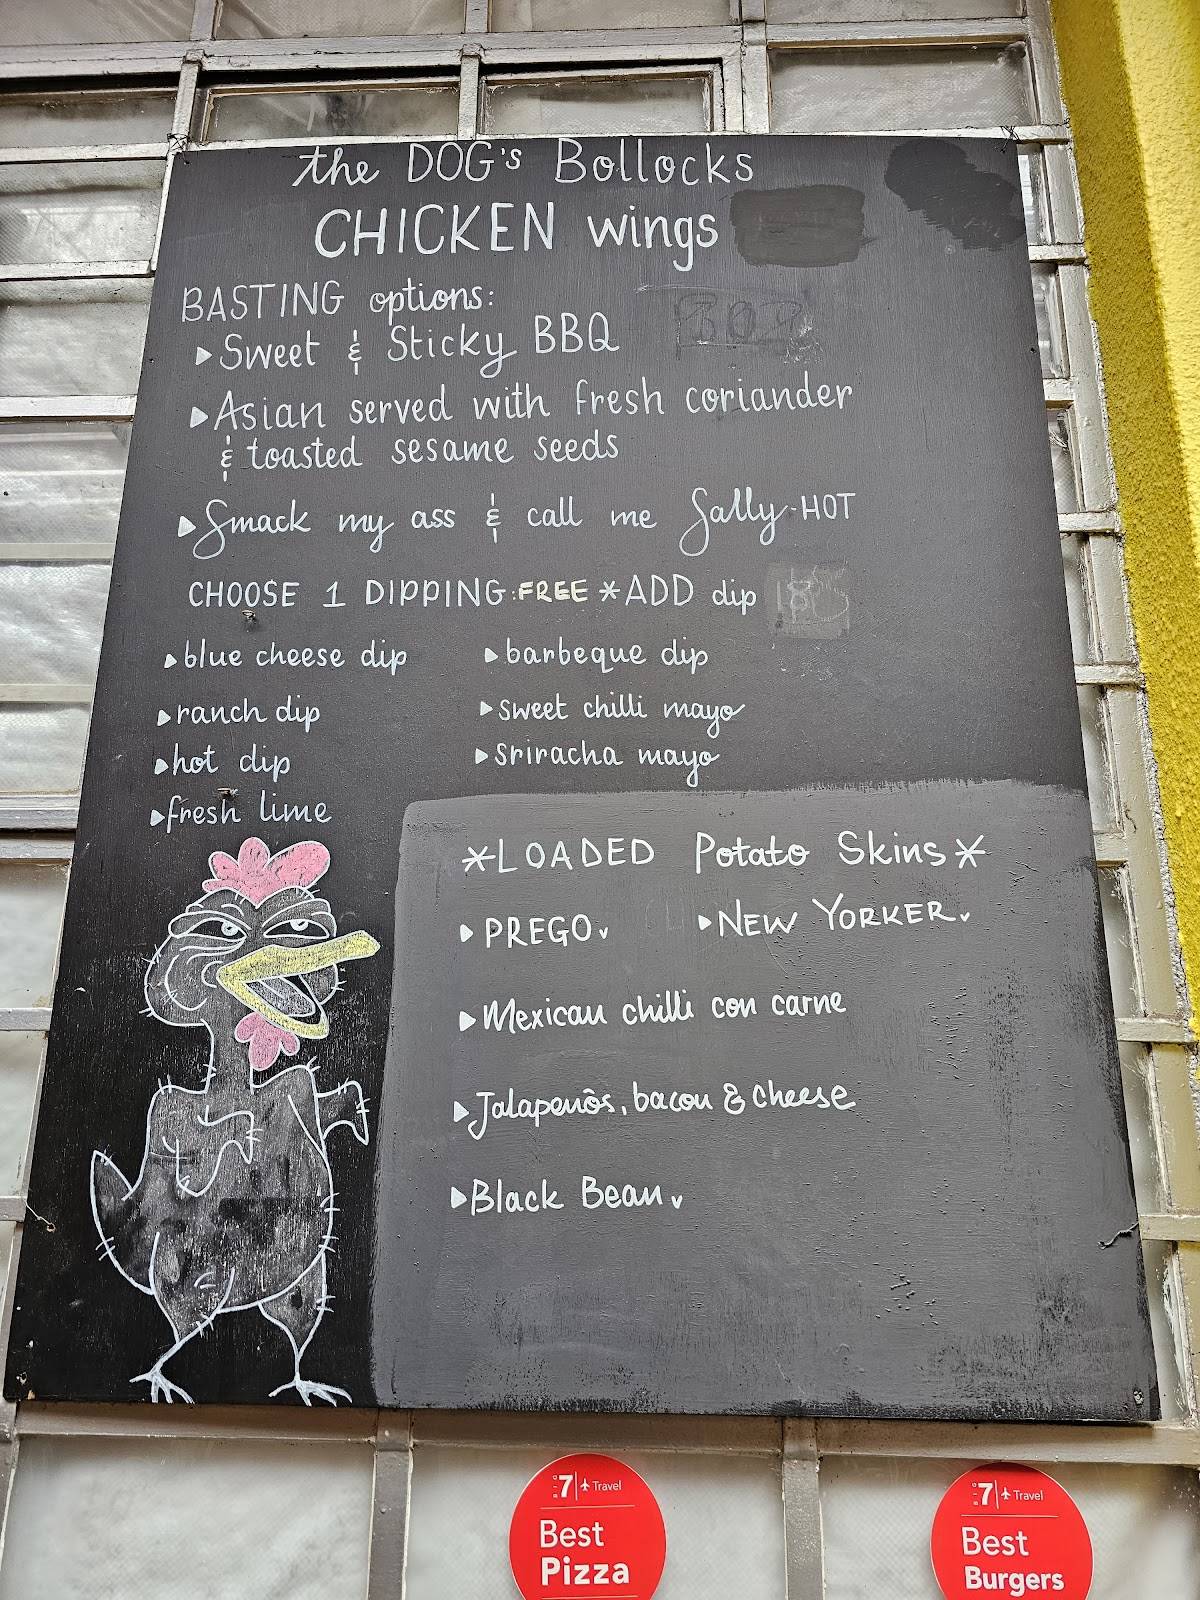 the DOG's Bollocks
CHICKEN wings
BASTING options:
▸ Sweet & Sticky BBQ
▸ Asian served with fresh coriander
& toasted sesame seeds
▸ Smack my ass & call me Sally-HOT
CHOOSE 1 DIPPING: FREE *ADD dip
▸ blue cheese dip
▸ ranch dip
▸ hot dip
▸ fresh lime
▸ barbeque dip
▸ sweet chilli mayo
▸ Sriracha mayo
*LOADED Potato Skins*
▸ PREGO v ▸ NEW YORKER v
▸ Mexican chilli con carne
▸ Jalapenôs, bacon & cheese
▸ Black Bean v
7 Travel
Best
Pizza
7 Travel
Best
Burgers